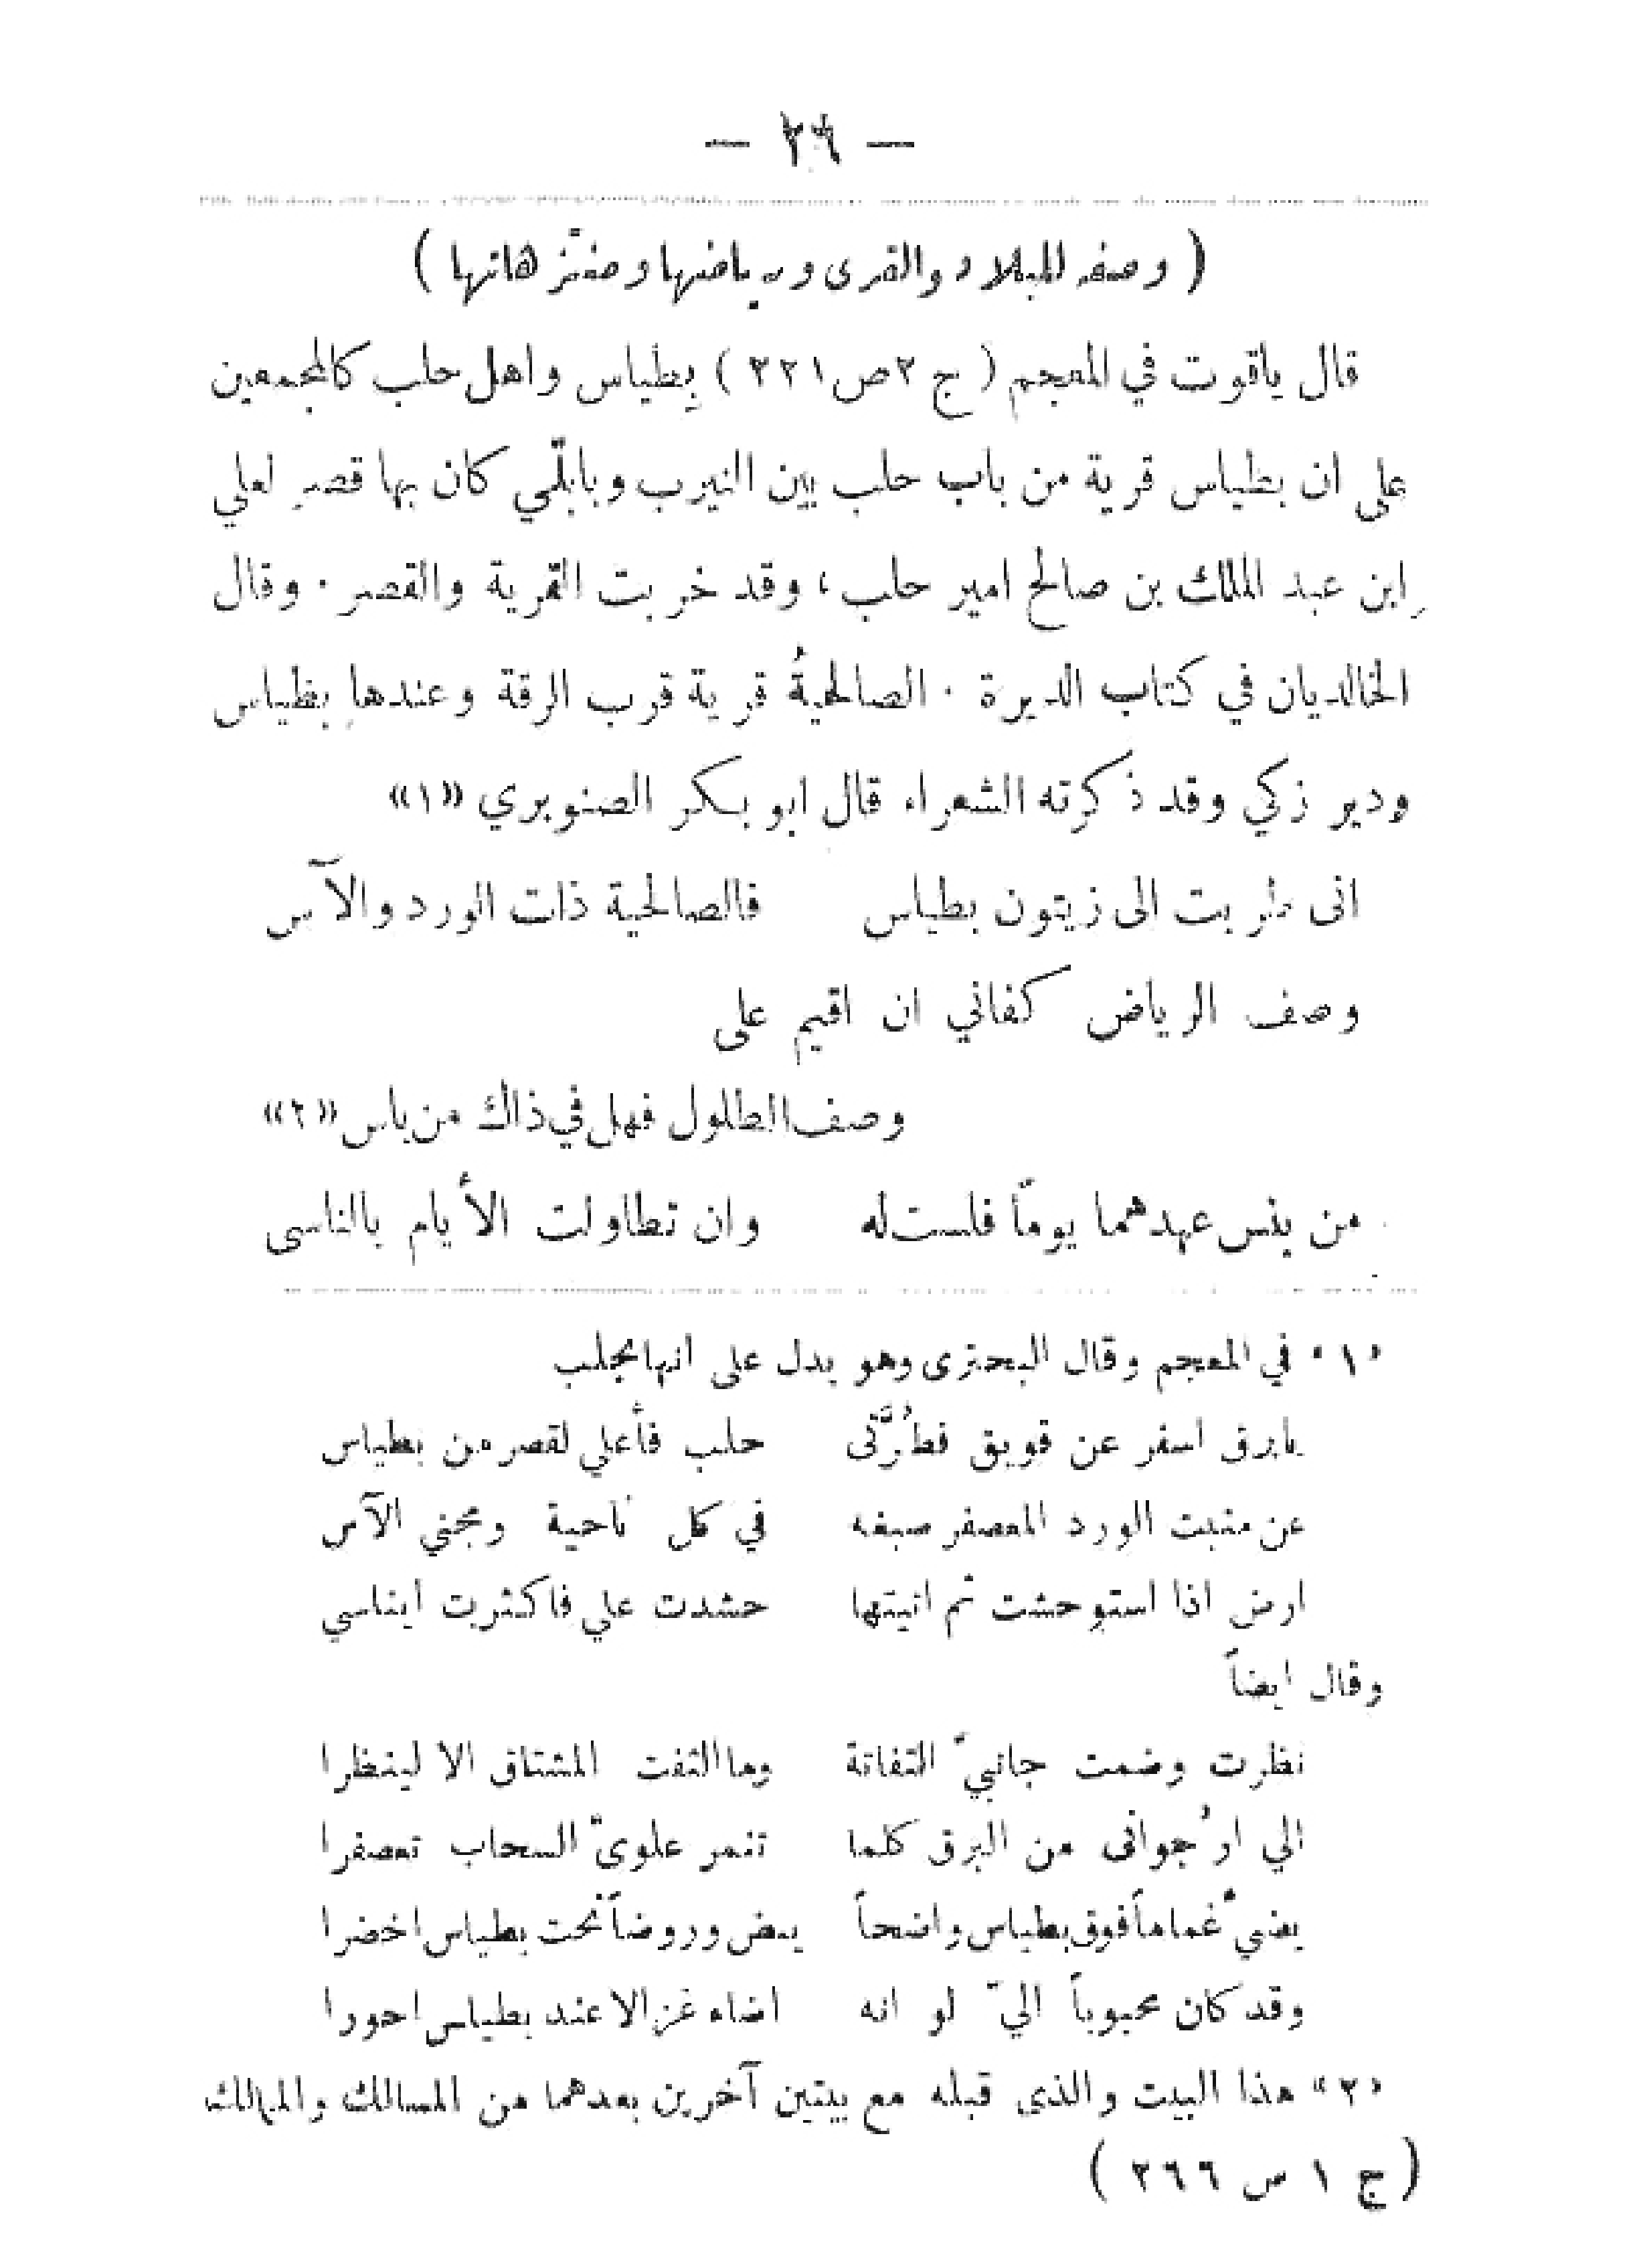 — ٢٦ —
( وصفه للبلاد والقرى ورياضها ومنتزهاتها )
قال ياقوت في المعجم ( ج ٢ ص ٢٢١ ) بِطياس واهل حلب كالمجمعين
على ان بطياس قرية من باب حلب بين النيرب وبابلّى كان بها قصر لعلي
ابن عبد الملك بن صالح امير حلب ، وقد خربت القرية والقصر . وقال
الخالديان في كتاب الديرة . الصالحيةُ قرية قرب الرقة وعندها بطياس
ودير زكي وقد ذكرته الشعراء قال ابو بكر الصنوبري «١»
انى طربت الى زيتون بطياس فالصالحية ذات الورد والآس
وصف الرياض كفاني ان اقيم على
وصف الطلول فهل في ذاك من باس «٢»
من ينس عهدهما يوماً فلست له وان تطاولت الأيام بالناسى
«١» في المعجم وقال البحترى وهو يدل على انها بحلب
يابرق اسفر عن قويق فطُرَّتى حلب فأعلي لقصر من بطياس
عن منبت الورد المعصفر صبغه في كل ناحية ومجني الآس
ارض اذا استوحشت ثم اتيتها حشدت علي فاكثرت ايناسي
وقال ايضاً
نظرت وضمت جانبيّ التفاتة وما التفت المشتاق الا لينظرا
الي ارُجوانى من البرق كلما تنمر علويّ السحاب تعصفرا
يضيّ غماماً فوق بطياس واضحاً يبض وروضاً تحت بطياس اخضرا
وقد كان محبوباً اليّ لو انه اضاء غزالا عند بطياس احورا
«٢» هذا البيت والذي قبله مع بيتين آخرين بعدهما من المسالك والممالك
( ج ١ س ٢٦٦ )